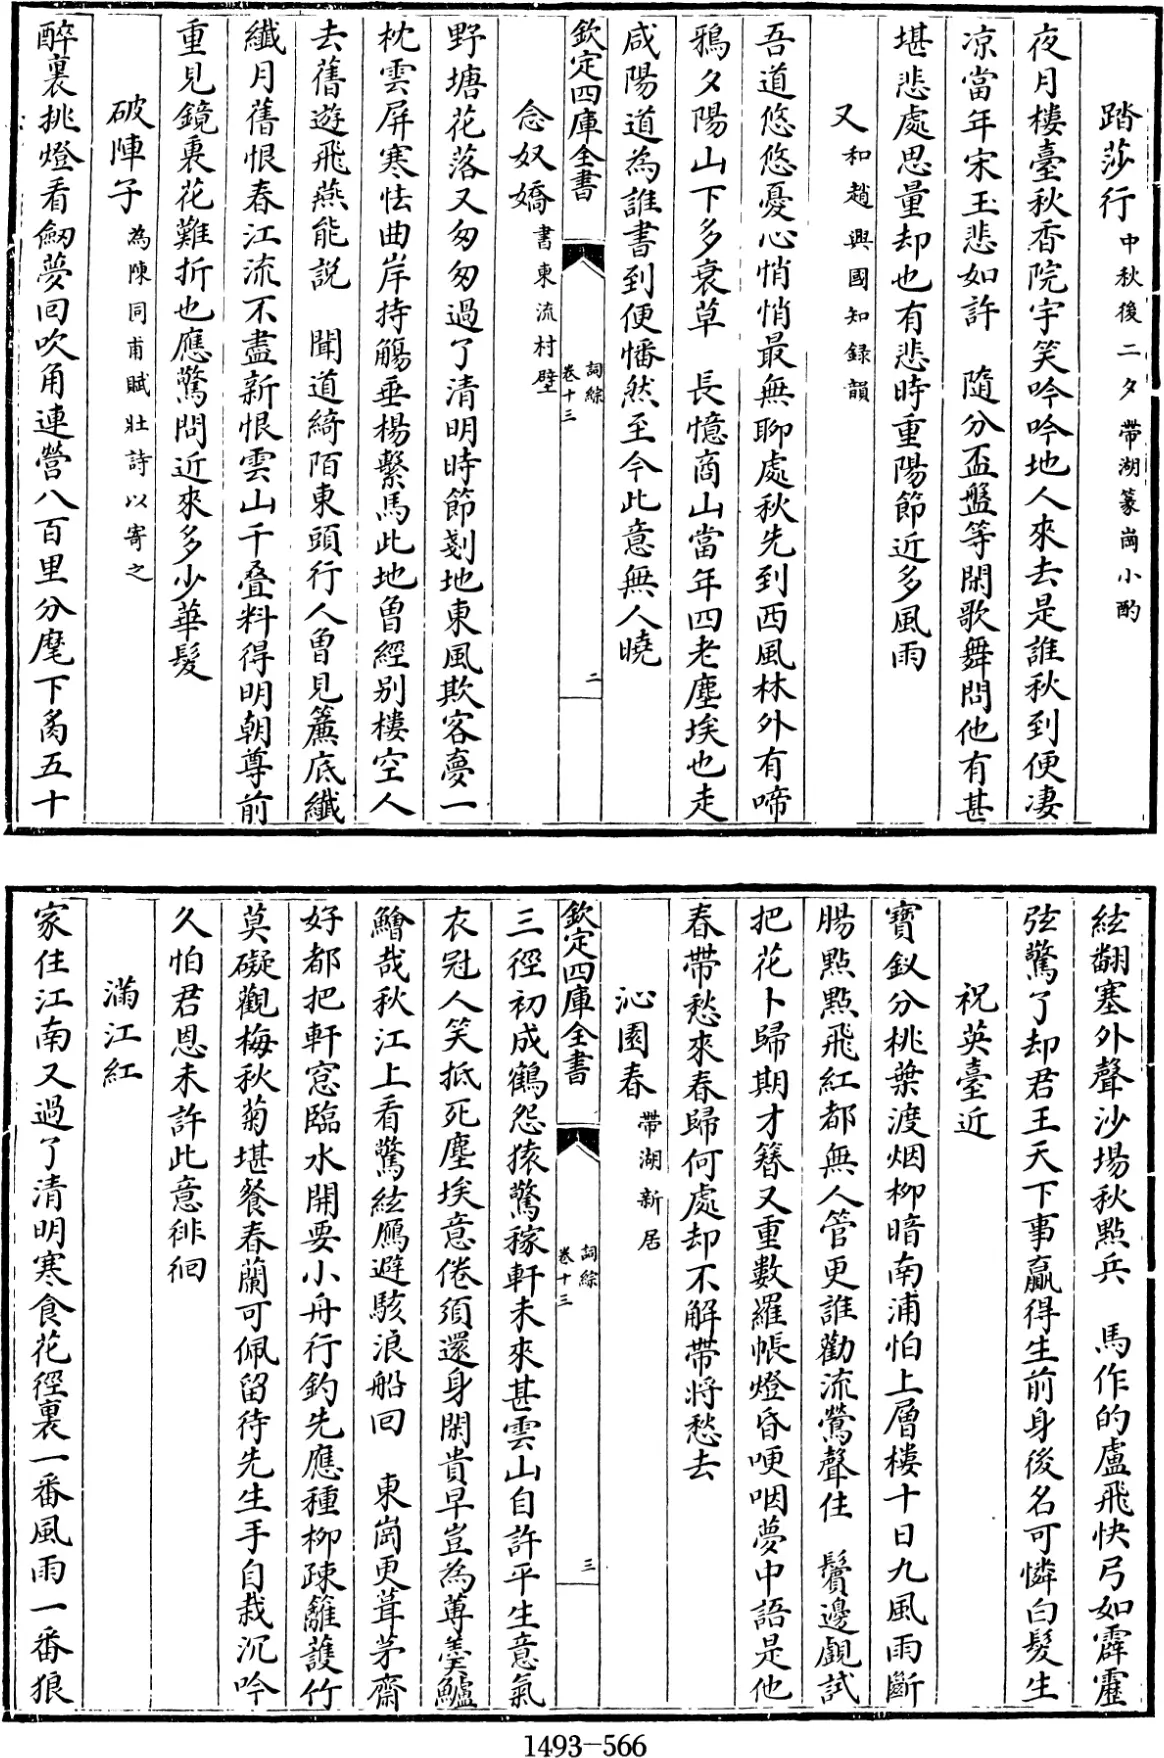 踏莎行中秋後二夕帶湖篆岡小酌
夜月樓臺秋香院宇笑吟吟地人來去是誰秋到便凄
凉當年宋玉悲如許　隨分盃盤等閑歌舞問他有甚
堪悲處思量却也有悲時重陽節近多風雨
又和趙興國知錄韻
吾道悠悠憂心悄悄最無聊處秋先到西風林外有啼
鴉夕陽山下多衰草　長憶商山當年四老塵埃也走
咸陽道為誰書到便幡然至今此意無人曉
欽定四庫全書
詞綜
卷十三
二
念奴嬌書東流村壁
野塘花落又匆匆過了清明時節剗地東風欺客夢一
枕雲屏寒怯曲岸持觴垂楊繫馬此地曾經别樓空人
去舊遊飛燕能說　聞道綺陌東頭行人曾見簾底纖
纖月舊恨春江流不盡新恨雲山千叠料得明朝尊前
重見鏡裏花難折也應驚問近來多少華髮
破陣子為陳同甫賦壯詩以寄之
醉裏挑燈看劔夢回吹角連營八百里分麾下炙五十
絃翻塞外聲沙場秋點兵　馬作的盧飛快弓如霹靂
弦驚了却君王天下事贏得生前身後名可憐白髮生
祝英臺近
寶釵分桃葉渡烟柳暗南浦怕上層樓十日九風雨斷
腸點點飛紅都無人管更誰勸流鶯聲住　鬢邊覷試
把花卜歸期才簪又重數羅帳燈昏哽咽夢中語是他
春帶愁來春歸何處却不解帶將愁去
沁園春帶湖新居
欽定四庫全書
詞綜
卷十三
三
三徑初成鶴怨猿驚稼軒未來甚雲山自許平生意氣
衣冠人笑抵死塵埃意倦須還身閑貴早豈為蓴羮鱸
鱠哉秋江上看驚絃鴈避駭浪船回　東岡更葺茅齋
好都把軒窓臨水開要小舟行釣先應種柳疎籬護竹
莫礙觀梅秋菊堪餐春蘭可佩留待先生手自栽沉吟
久怕君恩未許此意徘徊
滿江紅
家住江南又過了清明寒食花徑裏一番風雨一番狼
1493—566